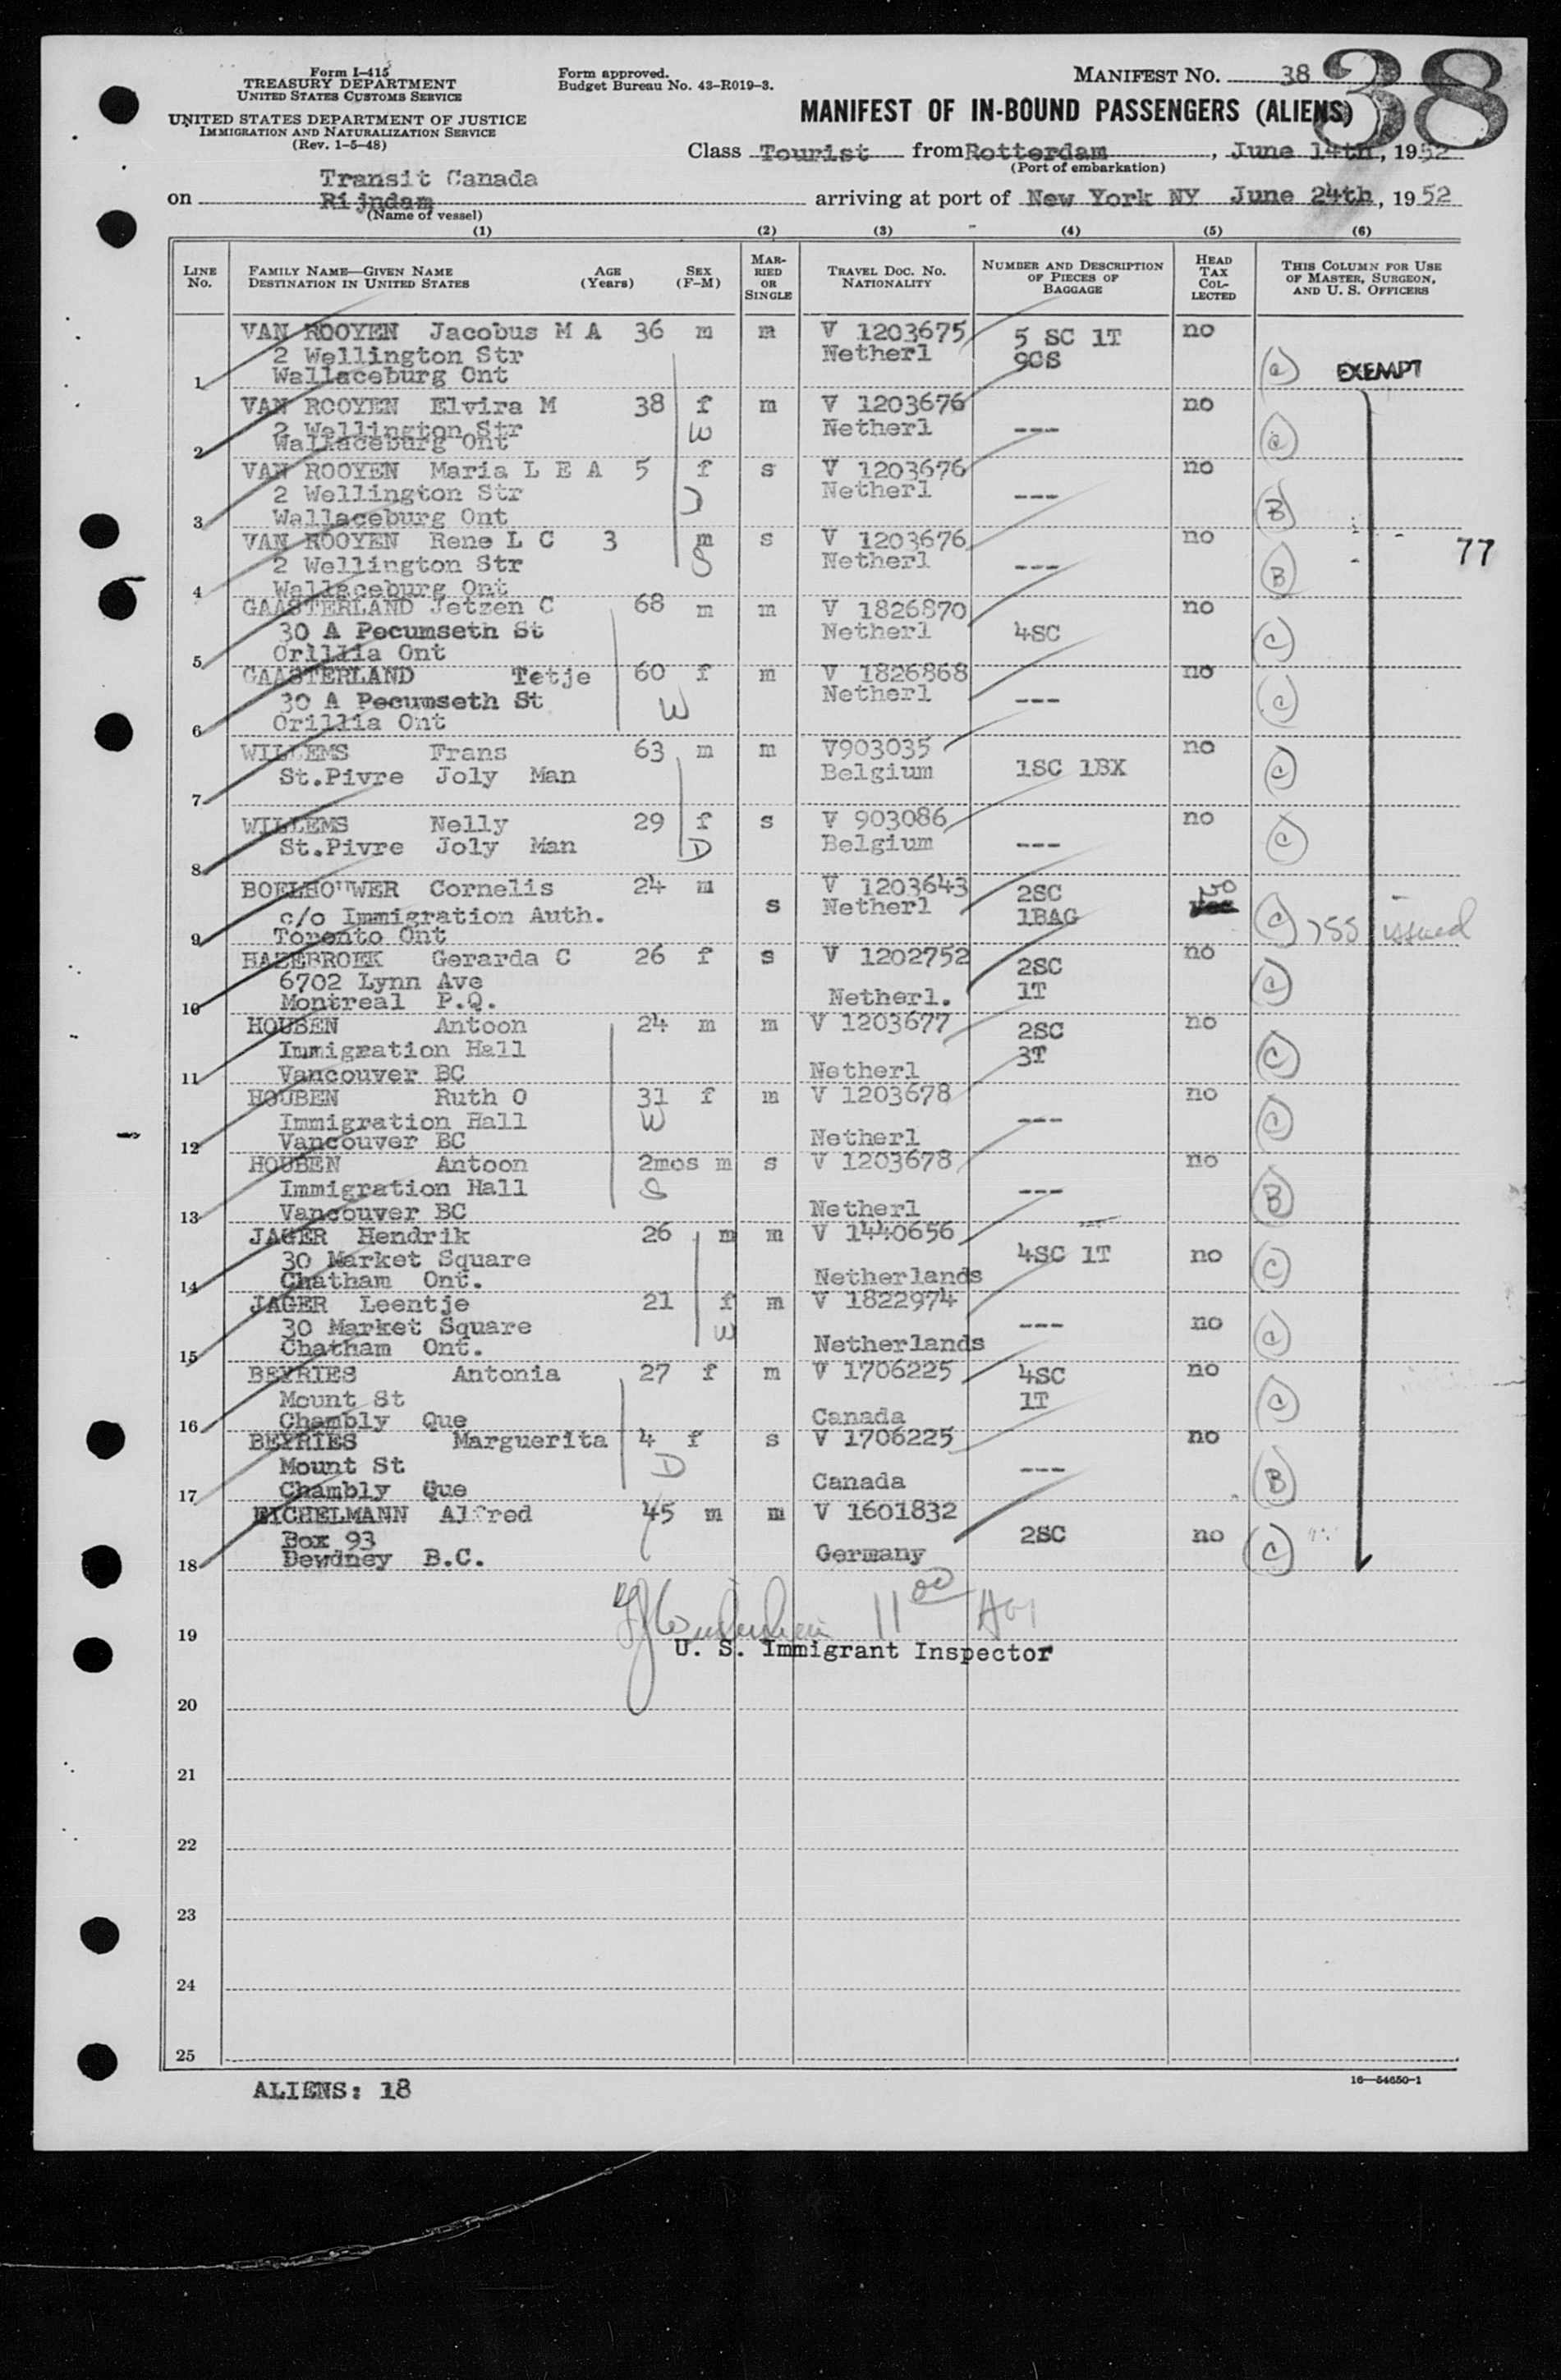 Form I-415
TREASURY DEPARTMENT
UNITED STATES CUSTOMS SERVICE
UNITED STATES DEPARTMENT OF JUSTICE
IMMIGRATION AND NATURALIZATION SERVICE
(Rev. 1-5-48)
Form approved.
Budget Bureau No. 43-R019-3.
MANIFEST NO. 38
38
MANIFEST OF IN-BOUND PASSENGERS (ALIENS)
Class Tourist from Rotterdam, June 14th, 1952
(Port of embarkation)
Transit Canada
on Rijndam arriving at port of New York NY June 24th, 1952
(Name of vessel)
(1) (2) (3) (4) (5) (6)
LINE NO. FAMILY NAME—GIVEN NAME DESTINATION IN UNITED STATES AGE (Years) SEX (F-M) MARRIED OR SINGLE TRAVEL DOC. NO. NATIONALITY NUMBER AND DESCRIPTION OF PIECES OF BAGGAGE HEAD TAX COLLECTED THIS COLUMN FOR USE OF MASTER, SURGEON, AND U. S. OFFICERS
VAN ROOYEN Jacobus M A 36 m m V 1203675 5 SC 1T no
2 Wellington Str Netherl 9CS
1 Wallaceburg Ont EXEMPT
VAN ROOYEN Elvira M 38 f m V 1203676 no
2 Wellington Str W Netherl ---
2 Wallaceburg Ont
VAN ROOYEN Maria L E A 5 f s V 1203676 no
2 Wellington Str D Netherl ---
3 Wallaceburg Ont B
VAN ROOYEN Rene L C 3 m s V 1203676 no 77
2 Wellington Str S Netherl ---
4 Wallaceburg Ont B
GAASTERLAND Jetzen C 68 m m V 1826870 no
30 A Pecumseth St Netherl 4SC C
5 Orillia Ont
GAASTERLAND Tetje 60 f m V 1826868 no
30 A Pecumseth St W Netherl --- C
6 Orillia Ont
WILLEMS Frans 63 m m V903035 no
St.Pivre Joly Man Belgium 1SC 1BX C
7
WILLEMS Nelly 29 f s V 903086 no
St.Pivre Joly Man D Belgium --- C
8
BOELHOUWER Cornelis 24 m V 1203643 2SC no
c/o Immigration Auth. s Netherl 1BAG C 755 issued
9 Toronto Ont
HAZEBROEK Gerarda C 26 f s V 1202752 2SC no
6702 Lynn Ave 1T C
10 Montreal P.Q. Netherl.
HOUBEN Antoon 24 m m V 1203677 2SC no
Immigration Hall 3T C
11 Vancouver BC Netherl
HOUBEN Ruth O 31 f m V 1203678 no
Immigration Hall W --- C
12 Vancouver BC Netherl
HOUBEN Antoon 2mos m s V 1203678 no
Immigration Hall S --- B
13 Vancouver BC Netherl
JAGER Hendrik 26 m m V 1440656
30 Market Square 4SC 1T no C
14 Chatham Ont. Netherlands
JAGER Leentje 21 f m V 1822974
30 Market Square W --- no C
15 Chatham Ont. Netherlands
BEYRIES Antonia 27 f m V 1706225 4SC no
Mount St 1T C
16 Chambly Que Canada
BEYRIES Marguerita 4 f s V 1706225 no
Mount St D --- B
17 Chambly Que Canada
EICHELMANN Alfred 45 m m V 1601832
Box 93 2SC no C
18 Dewdney B.C. Germany
11 00 AM
19
U. S. Immigrant Inspector
20
21
22
23
24
25
ALIENS: 18
16—54650-1